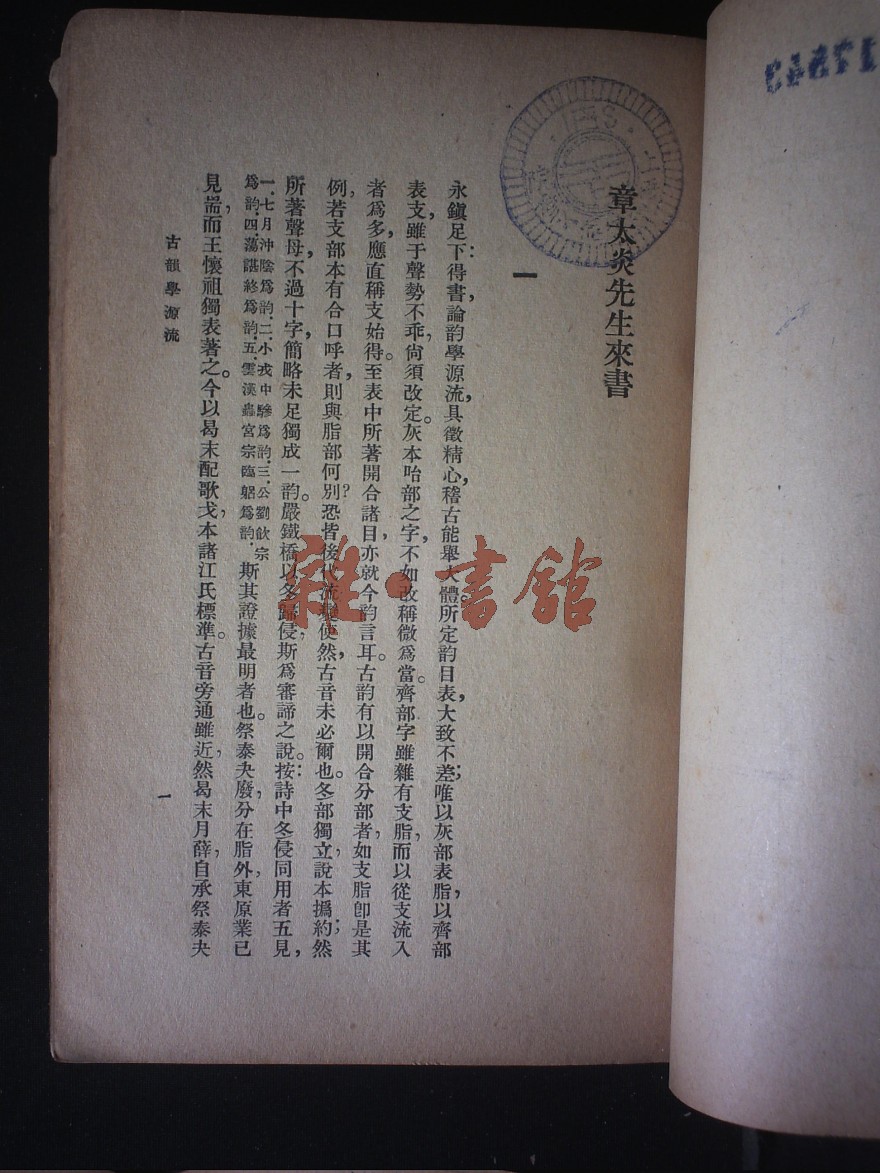 章太炎先生來書
一
永鎮足下：得書，論韵學源流，具徵精心，稽古能舉大體。所定韵目表，大致不差；唯以灰部表脂，以齊部
表支，雖于聲勢不乖，尙須改定。灰本咍部之字，不如改稱微爲當。齊部字雖雜有支脂，而以從支流入
者爲多，應直稱支始得。至表中所著開合諸目，亦就今韵言耳。古韵有以開合分部者，如支脂卽是其
例，若支部本有合口呼者，則與脂部何別？恐皆後代流變使然，古音未必爾也。冬部獨立，說本撝約；然
所著聲母，不過十字，簡略未足獨成一韵。嚴鐵橋以冬歸侵，斯爲審諦之說。按：詩中冬侵同用者五見，
一、七月沖陰爲韵。二、小戎中驂爲韵。三、公劉飲宗
爲韵。四、蕩諶終爲韵。五、雲漢蟲宮宗臨躬爲韵。
斯其證據最明者也。祭泰夬廢，分在脂外，東原業已
見耑，而王懷祖獨表著之。今以曷末配歌戈，本諸江氏標準。古音旁通雖近，然曷末月薛，自承祭泰夬
古韻學源流
一
雜·書館